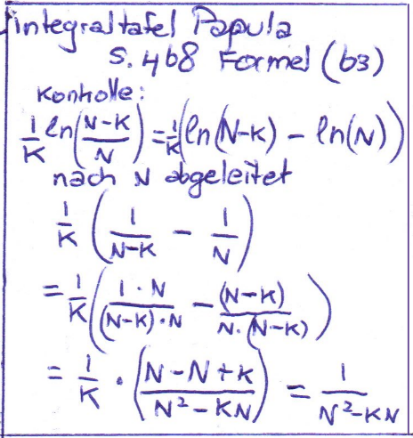 integraltafel Papula
S. 468 Formel (63)
Kontrolle:
1/K ln((N-K)/N) = 1/K (ln(N-K) - ln(N))
nach N abgeleitet
1/K (1/(N-K) - 1/N)
= 1/K ((1·N)/((N-K)·N) - (N-K)/(N·(N-K)))
= 1/K · ((N-N+K)/(N²-KN)) = 1/(N²-KN)